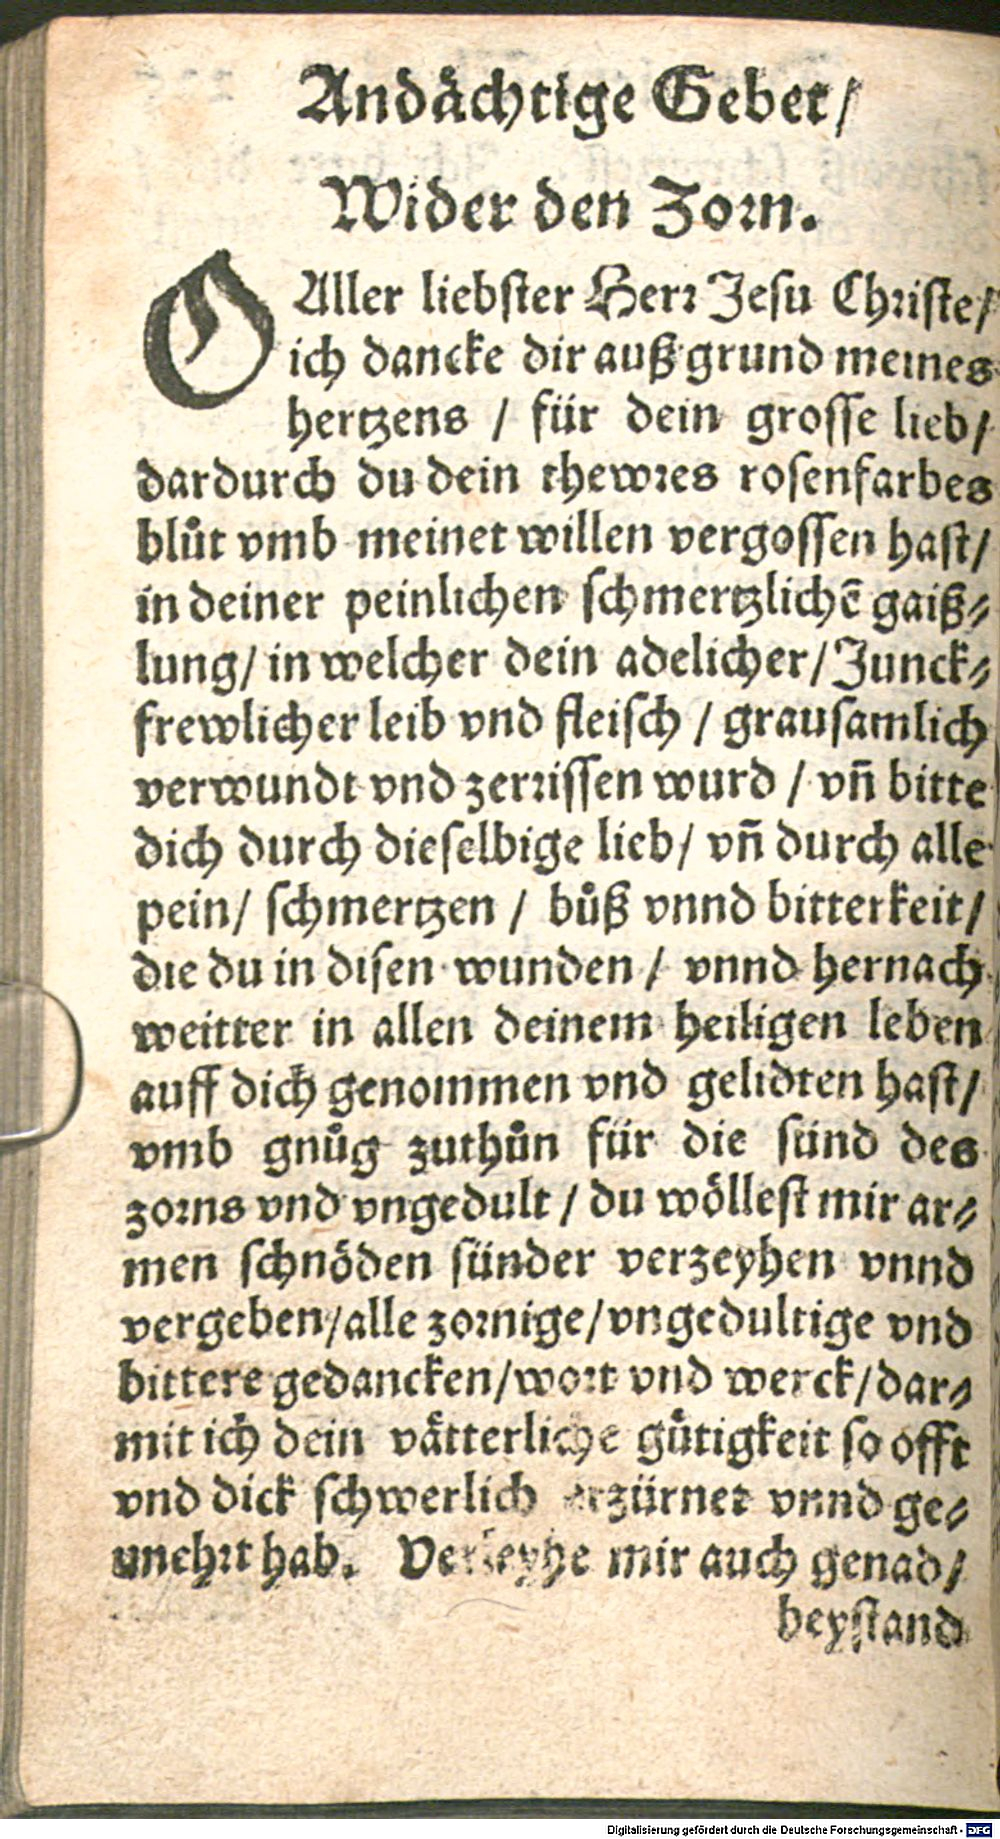 Andaͤchtige Gebet/
Wider den Zorn.
O Aller liebster Herr Jesu Christe/
ich dancke dir auß grund meines
hertzens / für dein grosse lieb/
dardurch du dein thewres rosenfarbes
bluͦt vmb meinet willen vergossen hast/
in deiner peinlichen schmertzlichē gaiß⸗
lung/ in welcher dein adelicher/ Junck⸗
frewlicher leib vnd fleisch / grausamlich
verwundt vnd zerrissen wurd / vñ bitte
dich durch dieselbige lieb/ vñ durch alle
pein/ schmertzen / buͦß vnnd bitterkeit/
die du in disen wunden / vnnd hernach
weitter in allen deinem heiligen leben
auff dich genommen vnd gelidten hast/
vmb gnuͦg zuthuͦn für die sünd des
zorns vnd vngedult / du woͤllest mir ar⸗
men schnoͤden sünder verzeyhen vnnd
vergeben/alle zornige/vngedultige vnd
bittere gedancken/wort vnd werck/dar⸗
mit ich dein vaͤtterliche guͤtigkeit so offt
vnd dick schwerlich erzürnet vnnd ge⸗
unehrt hab. Verleyhe mir auch genad/
beystand
Digitalisierung gefördert durch die Deutsche Forschungsgemeinschaft - DFG